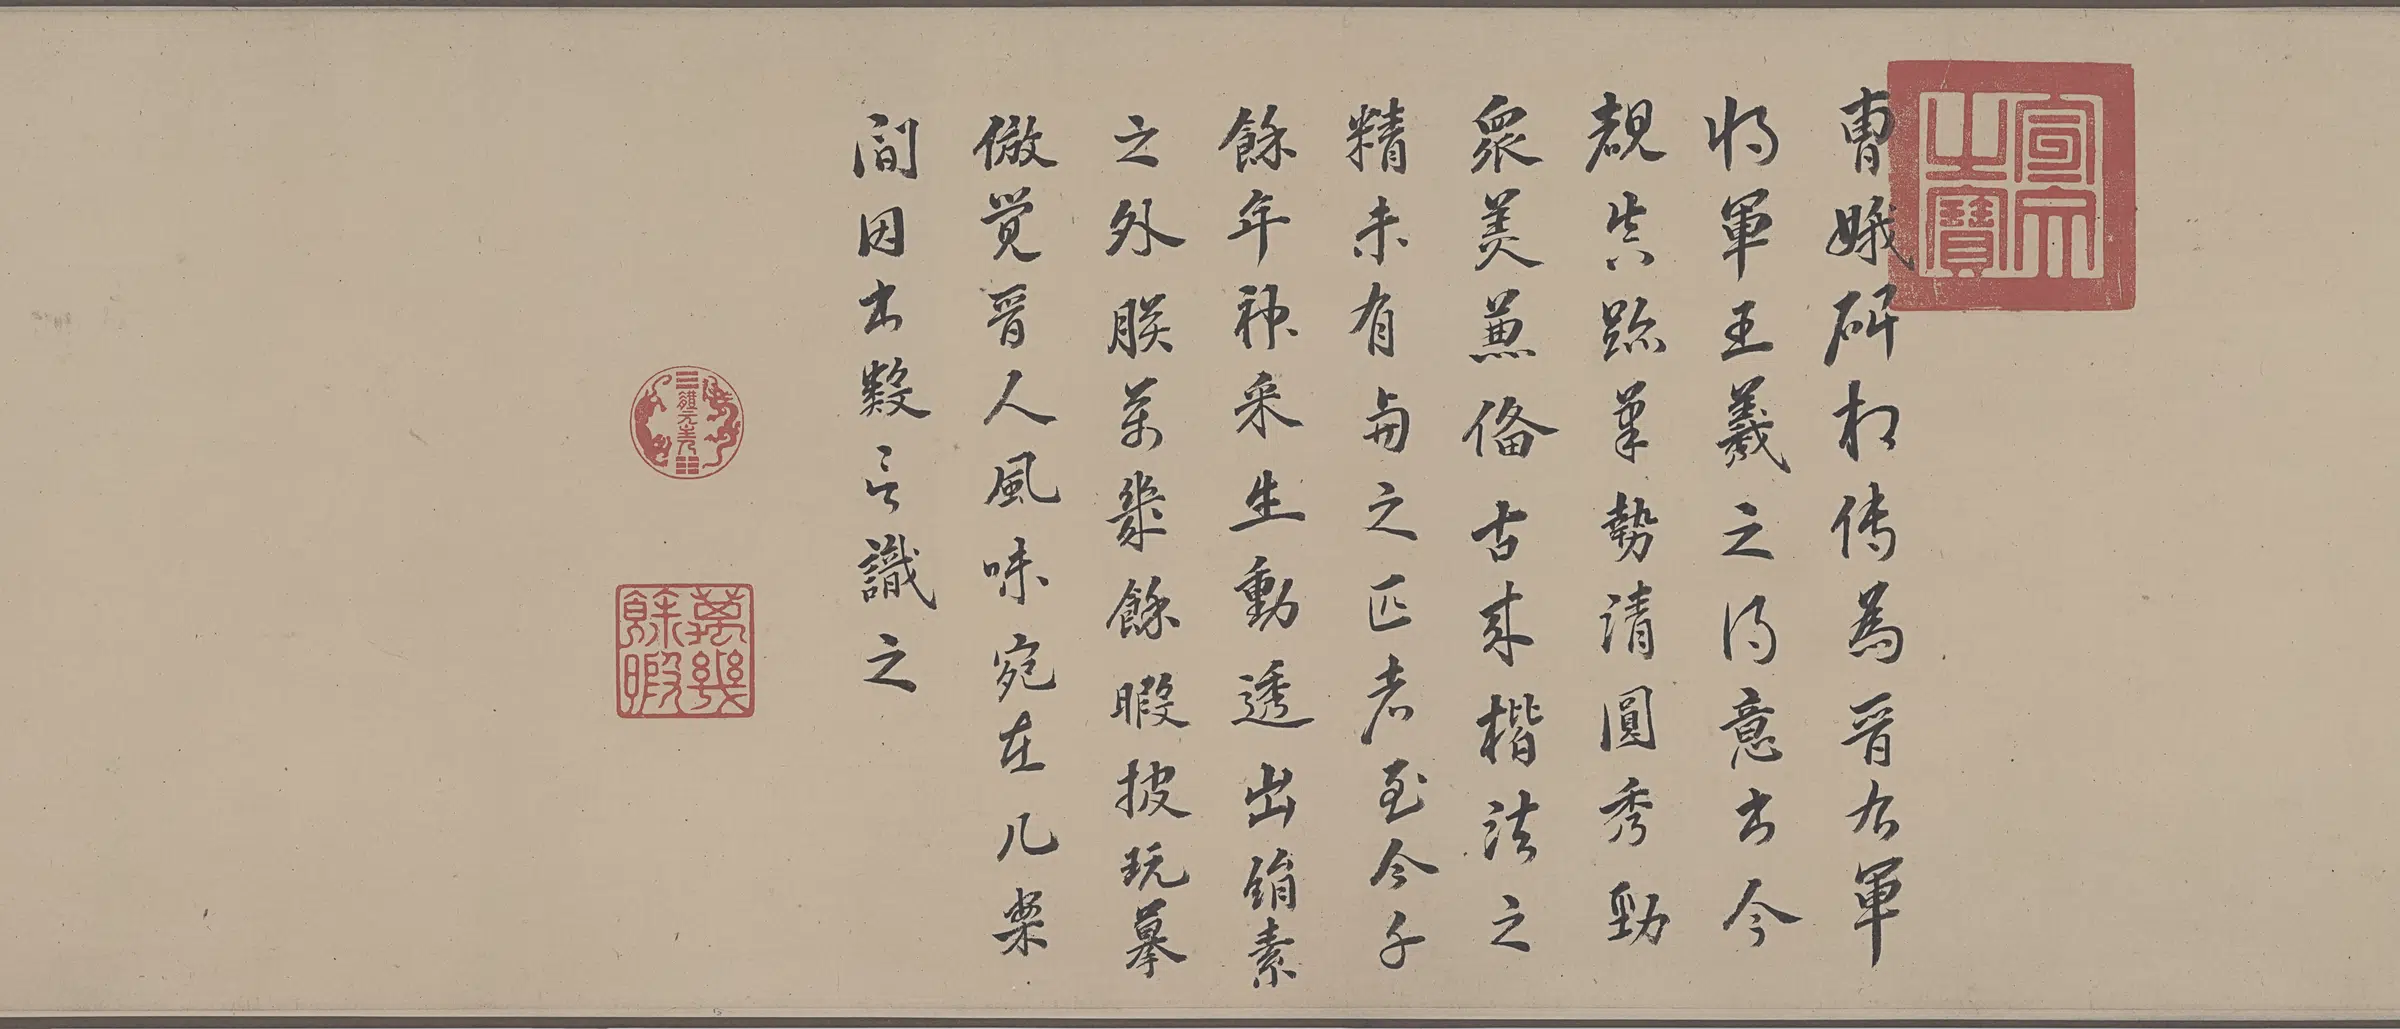 宣宗之寶
曹娥碑相传為晉右軍
将軍王羲之得意書今
覩真跡筆勢清圓秀勁
衆美兼備古来楷法之
精未有與之匹者至今千
餘年神采生動透出絹素
之外朕萬幾餘暇披玩摹
倣覺晉人風味宛在几案
間因書數言識之
體元主人
萬幾餘暇